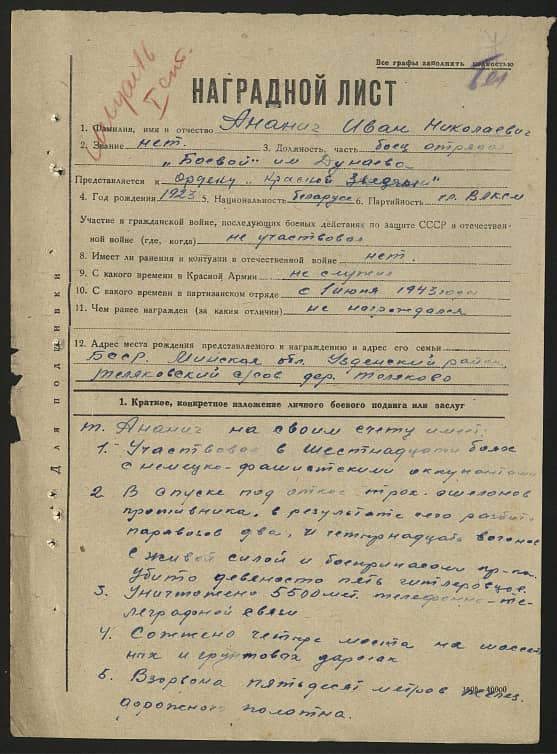 Все графы заполнять полностью
НАГРАДНОЙ ЛИСТ
1. Фамилия, имя и отчество Ананич Иван Николаевич
2. Звание нет. 3. Должность, часть боец отряда
„Боевой" им Дунаева
Представляется к Ордену „Красной Звезды"
4. Год рождения 1923 5. Национальность беларус 6. Партийность чл. ВЛКСМ
Участие в гражданской войне, последующих боевых действиях по защите СССР и отечествен-
ной войне (где, когда) не участвовал
8. Имеет ли ранения и контузии в отечественной войне нет.
9. С какого времени в Красной Армии не служил
10. С какого времени в партизанском отряде с 1 июня 1943 года
11. Чем ранее награжден (за какия отличия) не награждался
12. Адрес места рождения представляемого к награждению и адрес его семьи
БССР. Минская обл. Узденский район
Теляковский с/сов дер. Теляково
1. Краткое, конкретное изложение личного боевого подвига или заслуг
т. Ананич на своим счету имеет:
1. Участвовал в шестнадцати боях
с немецко-фашистскими оккупантами
2. В спуске под откос трох эшелонов
противника, в результате чего разбито
паравозов два, и четырнадцать вагонов
с живой силой и боеприпасами пр-ка.
убито девеносто пять гитлеровцев.
3. Уничтожено 5500 мт. телефонно-те-
леграфной связи
4. Сожжено четыре моста на шоссей-
ных и грунтовах дарогах
5. Взорвона пятьдесят метров желез.
дорожного полотна.
Для подшивки